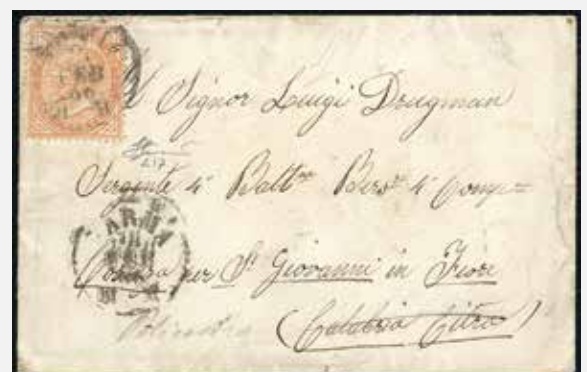 FEB
Signor Luigi Drugman
Sergente 4° Batt.ne Bers. 4° Comp.
PARMA
Cosenza per S. Giovanni in Fiore
(Calabria Citra)